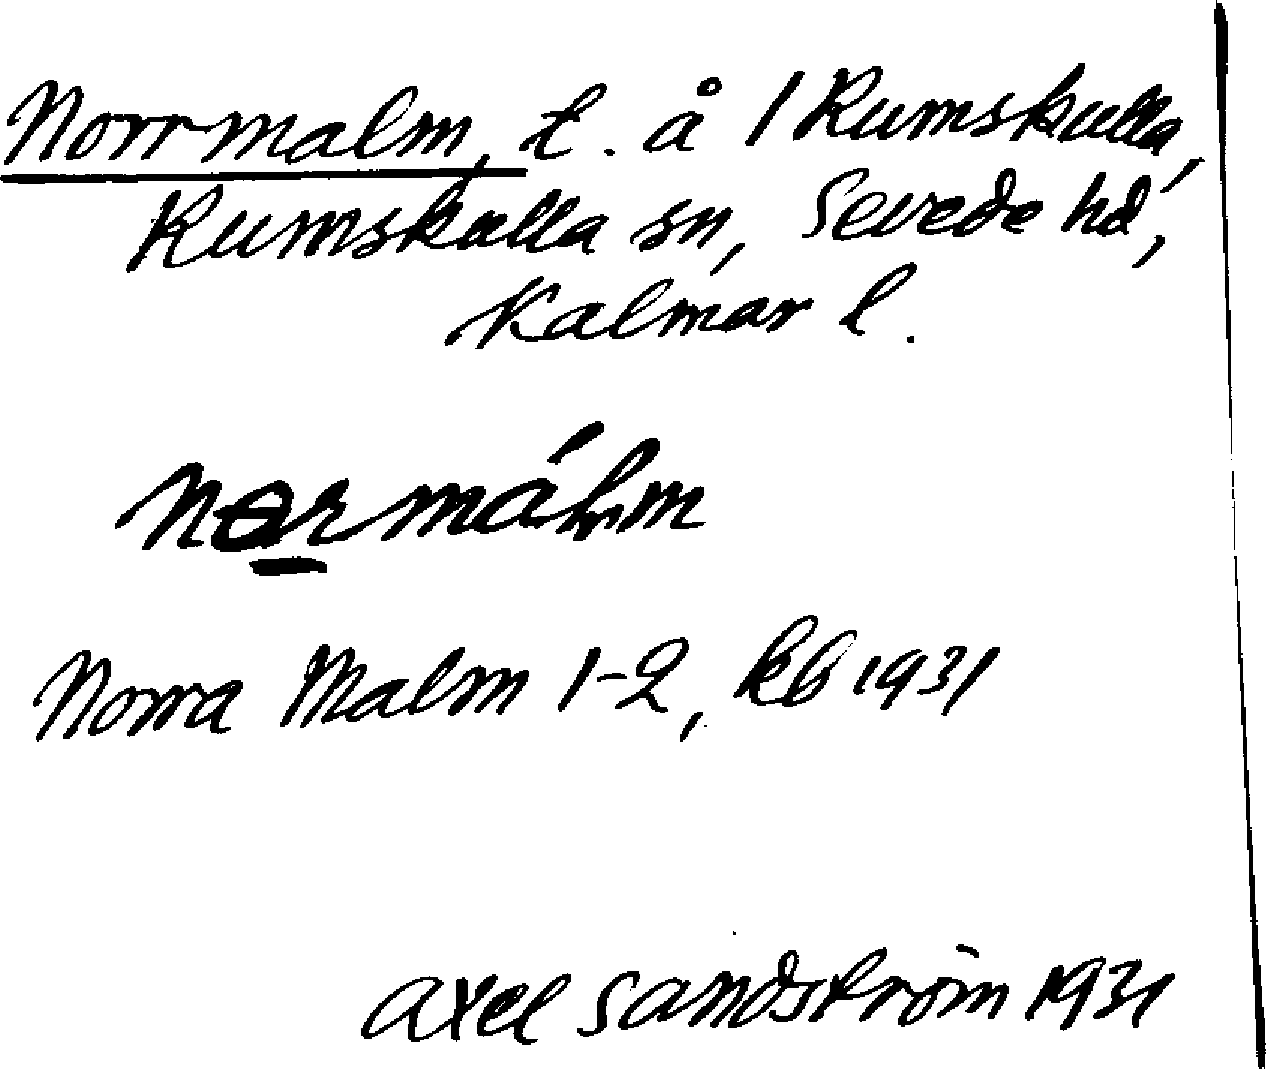 Norrmalm, t. å 1 Rumskulla,
Rumskulla sn, Sevede hd,
Kalmar l.
Norra Malm 1-2, kb 1931
Axel Sandström 1931